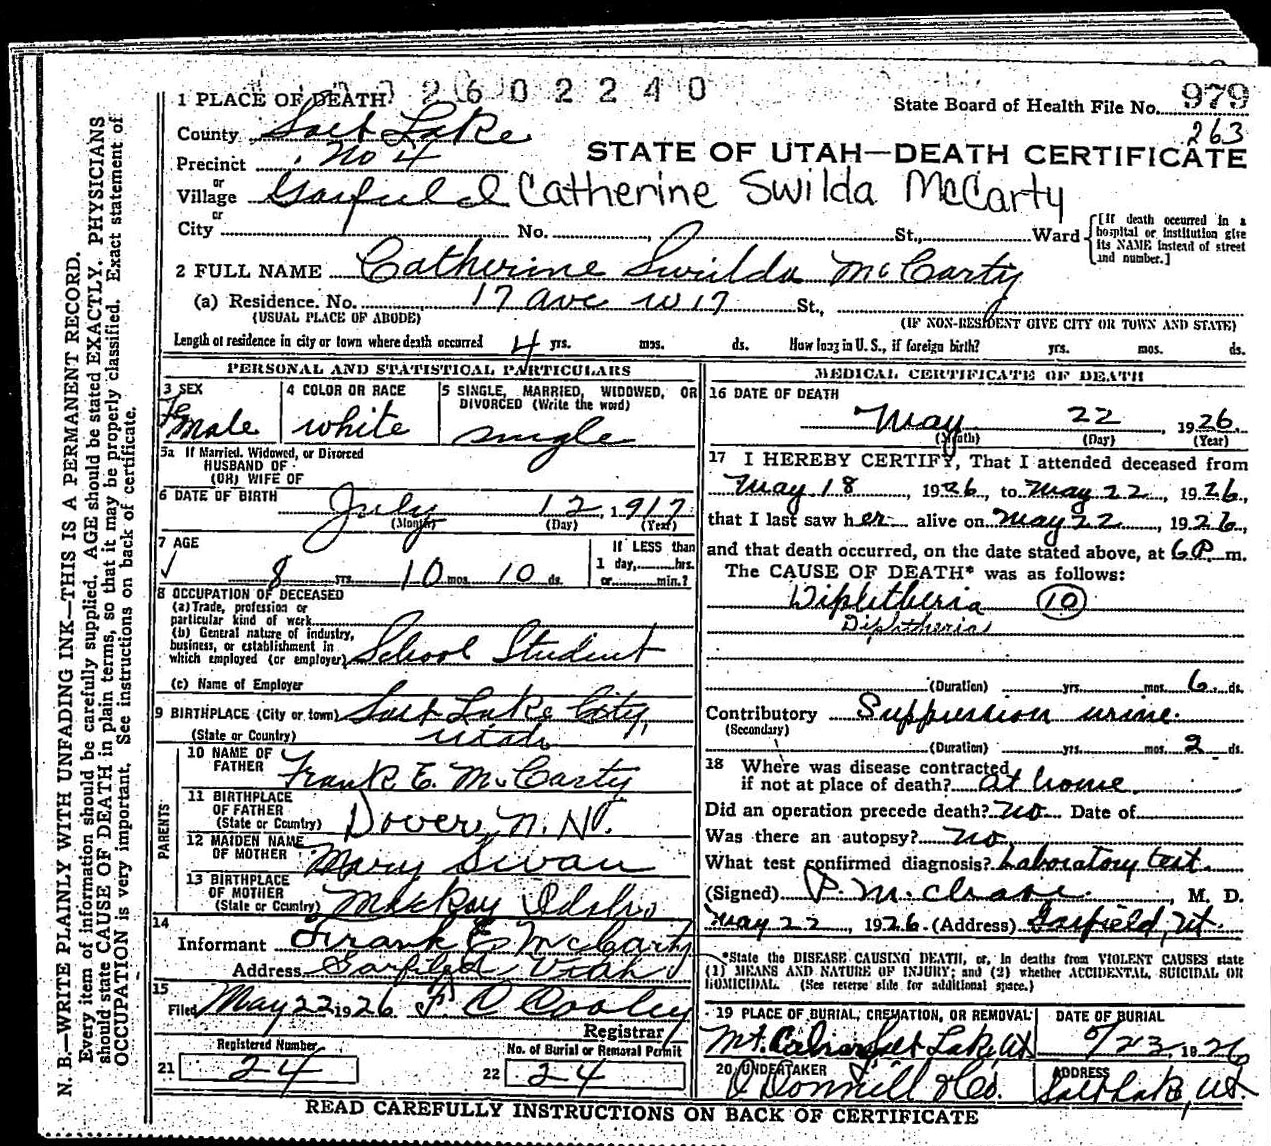 2602240
1 PLACE OF DEATH
State Board of Health File No. 979
263
County Salt Lake
Precinct No 4
STATE OF UTAH—DEATH CERTIFICATE
or
Village Garfield Catherine Swilda McCarty
or
City No. St., Ward
[If death occurred in a hospital or institution give its NAME instead of street and number.]
2 FULL NAME Catherine Swilda McCarty
(a) Residence. No. 17 ave W 17 St.,
(USUAL PLACE OF ABODE) (IF NON-RESIDENT GIVE CITY OR TOWN AND STATE)
Length of residence in city or town where death occurred 4 yrs. mos. ds. How long in U. S., if foreign birth? yrs. mos. ds.
PERSONAL AND STATISTICAL PARTICULARS
3 SEX 4 COLOR OR RACE 5 SINGLE, MARRIED, WIDOWED, OR
DIVORCED (Write the word)
Female white single
5a If Married, Widowed, or Divorced
HUSBAND OF
(OR) WIFE OF
6 DATE OF BIRTH July 12, 1917
(Month) (Day) (Year)
7 AGE If LESS than
1 day, hrs.
✓ 8 yrs. 10 mos. 10 ds. or min.?
8 OCCUPATION OF DECEASED
(a) Trade, profession or
particular kind of work
(b) General nature of industry,
business, or establishment in
which employed (or employer) School Student
(c) Name of Employer
9 BIRTHPLACE (City or town) Salt Lake City,
(State or Country) Utah
PARENTS
10 NAME OF
FATHER Frank E. McCarty
11 BIRTHPLACE
OF FATHER
(State or Country) Dover, N. H.
12 MAIDEN NAME
OF MOTHER Mary Swan
13 BIRTHPLACE
OF MOTHER
(State or Country) Mackay Idaho
14
Informant Frank E McCarty
Address Garfield Utah
15
Filed May 22 1926 F. C Cooley
Registrar
Registered Number No. of Burial or Removal Permit
21 24 22 24
MEDICAL CERTIFICATE OF DEATH
16 DATE OF DEATH
May 22, 1926
(Month) (Day) (Year)
17 I HEREBY CERTIFY, That I attended deceased from
May 18, 1926, to May 22, 1926,
that I last saw her alive on May 22, 1926,
and that death occurred, on the date stated above, at 6 P. m.
The CAUSE OF DEATH* was as follows:
Diphtheria (10)
Diphtheria
(Duration) yrs. mos. 6 ds.
Contributory Suppression urine
(Secondary)
(Duration) yrs. mos. 2 ds.
18 Where was disease contracted
if not at place of death? at home
Did an operation precede death? no Date of
Was there an autopsy? no
What test confirmed diagnosis? Laboratory test.
(Signed) , M. D.
May 22, 1926. (Address) Garfield, Ut.
*State the DISEASE CAUSING DEATH, or, in deaths from VIOLENT CAUSES state
(1) MEANS AND NATURE OF INJURY; and (2) whether ACCIDENTAL, SUICIDAL OR
HOMICIDAL. (See reverse side for additional space.)
19 PLACE OF BURIAL, CREMATION, OR REMOVAL DATE OF BURIAL
Mt. Calvary Salt Lake, Ut 5/23 1926
20 UNDERTAKER ADDRESS
O'Donnell & Co. Salt Lake, Ut.
READ CAREFULLY INSTRUCTIONS ON BACK OF CERTIFICATE
N. B.—WRITE PLAINLY WITH UNFADING INK—THIS IS A PERMANENT RECORD.
Every item of information should be carefully supplied. AGE should be stated EXACTLY. PHYSICIANS
should state CAUSE OF DEATH in plain terms, so that it may be properly classified. Exact statement of
OCCUPATION is very important. See instructions on back of certificate.